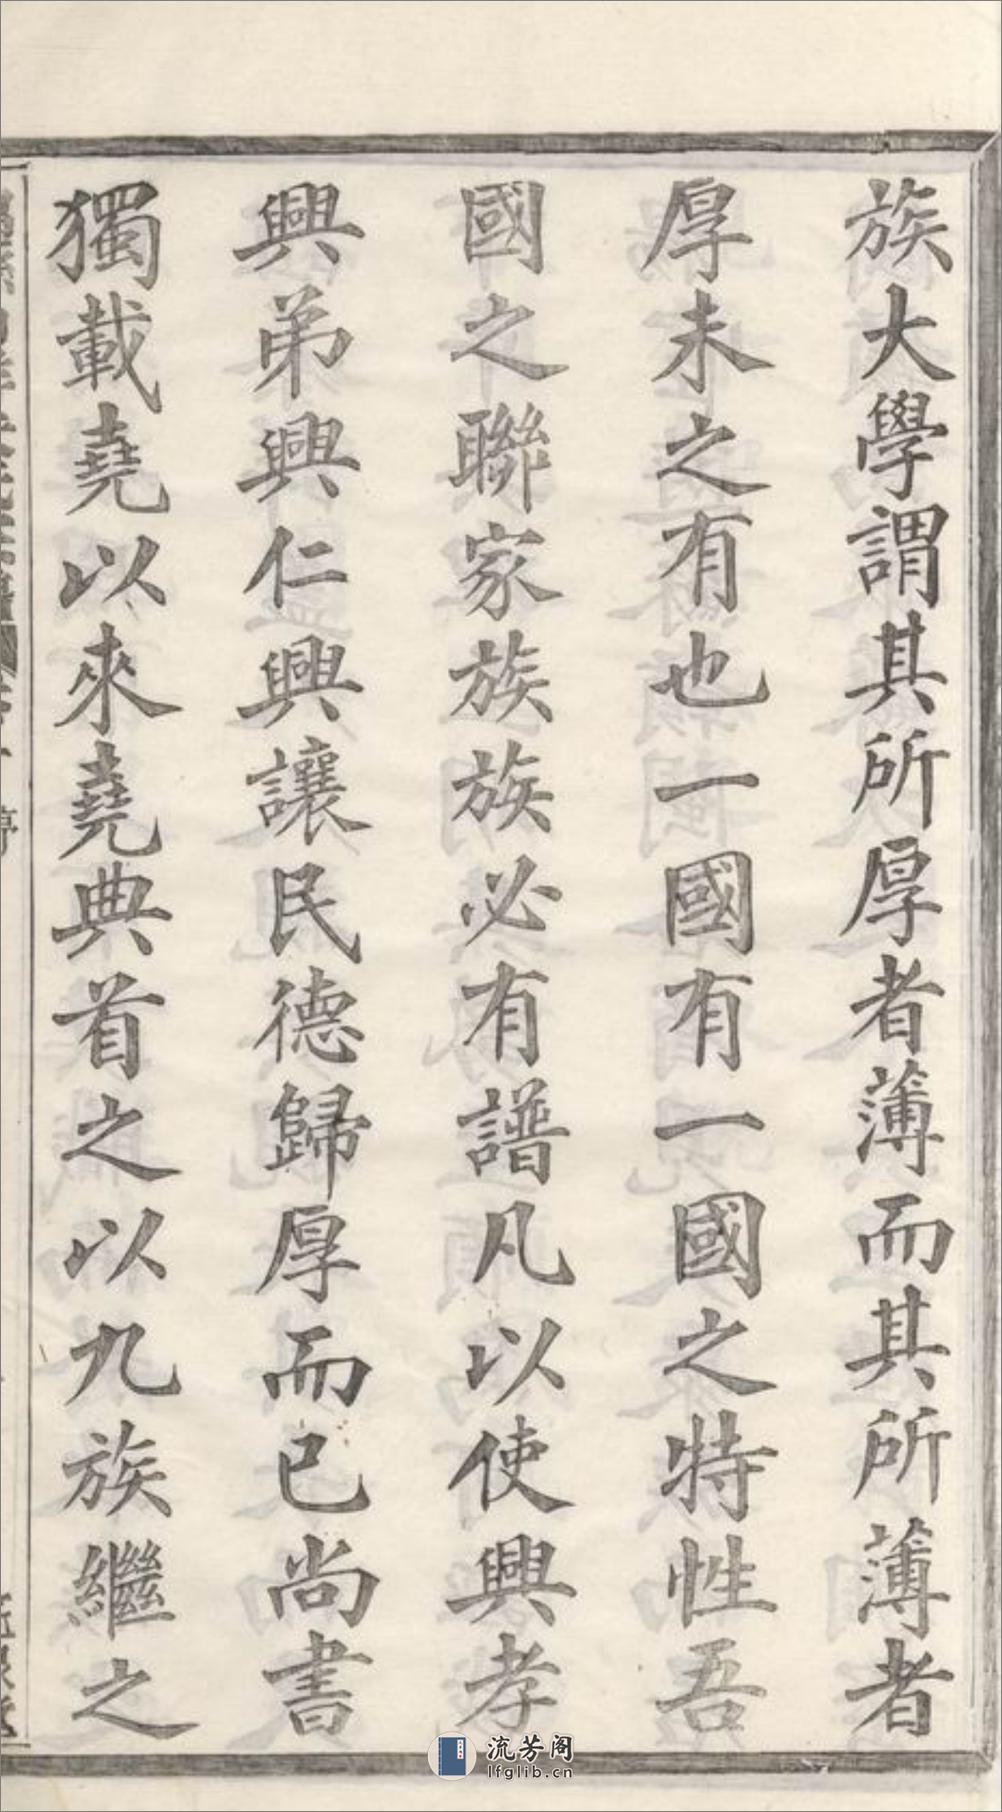 族大學謂其所厚者薄而其所薄者
厚未之有也一國有一國之特性吾
國之聯家族族必有譜凡以使興孝
興弟興仁興讓民德歸厚而已尚書
獨載堯以來堯典首之以九族繼之
流芳阁
lfglib.cn